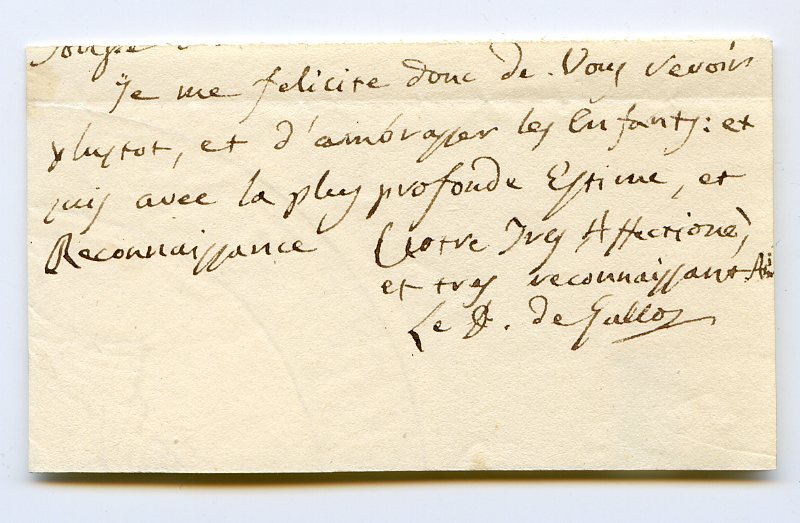 Je me felicite donc de Vous revoir
plustot, et d'ambrasser les Enfants: et
suis avec la plus profonde Estime, et
Reconnaissance Votre Tres Affectioné,
et tres reconnaissant
Le D. de Gallo